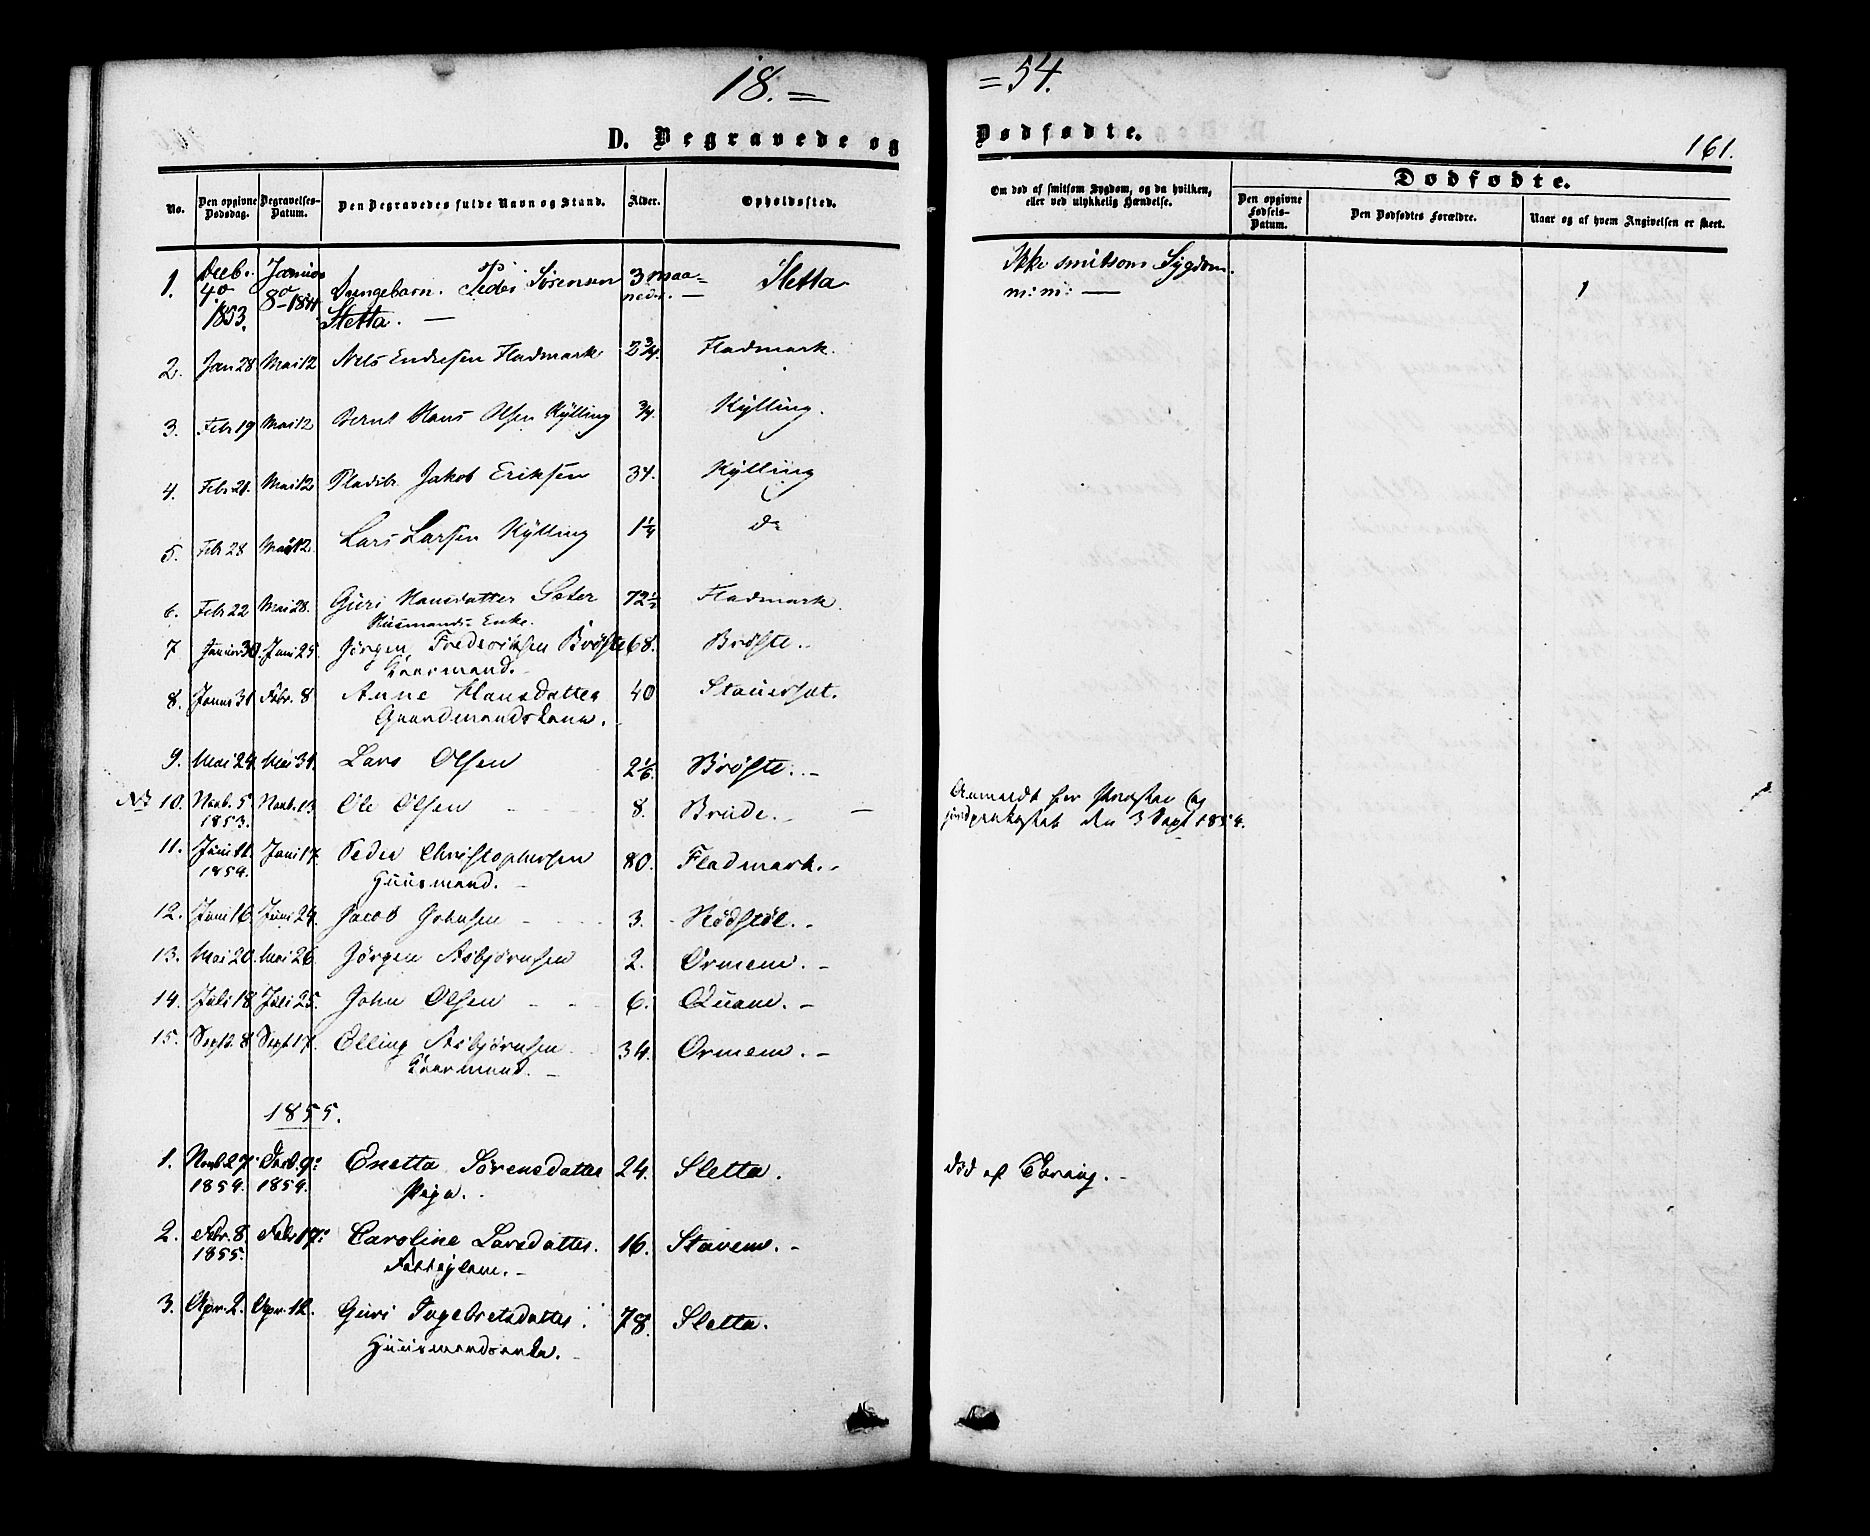 18. = = 54.
161.
D. Begravede og Dødfødte.
No. Den opgivne Dødsdag. Begravelses-Datum. Den Begravedes fulde Navn og Stand. Alder. Opholdssted. Om død af smitsom Sygdom, og da hvilken, eller ved ulykkelig Hændelse. Dødfødte.
Den opgivne Fødsels-Datum. Den Dødfødtes Forældre. Naar og af hvem Angivelsen er skeet.
1. Decb. 4de 1853. 8de 1854 Drengebarn. Peder Sørensen Sletta. 3 maaneder. Sletta Ikke smitsom Sygdom. m: m: 1
2. Jan 28 Mai 12 Nels Endresen Fladmark. 2 3/4. Fladmark.
3. Febr 19 Mai 12 Bernt Hans Olsen Kÿlling 3/4. Kÿlling.
4. Febr 21. Mai 12 Jakob Eriksen 34. Kÿlling
5. Febr 28 Mai 12. Lars Larsen Kÿlling 1 1/4 do
6. Febr 22 Mai 28. Guri Hansdatter Seter 72 1/2 Fladmark.
Huusmands Enke.
7 30. Juni 25. Jørgen Frederiksen Brøste 68. Brøste.
Gaarmand.
8. Januar 31 Febr. 8 Anne Hansdatter 40 Stauerset.
Gaardmandskone.
9. Mai 24. Mai 31. Lars Olsen 2 1/6. Brøste.
No 10. Novb. 5 1853. Novb. 13 Ole Olsen 8. Brude. Anmeldt for Præsten og jordpaakastet den 3 Sept 1854.
11. Juni 11. 1854. Juni 17. Peder Christophersen 80. Fladmark.
Huusmand.
12. Juni 16 Juni 24. Jacob Johnsen 3. Rødstøl.
13. Mai 20. Mai 26. Jørgen Asbjørnsen 2. Ormem.
14. Juli 18 Juli 25. John Olsen 6. Quam.
15. Sept. 8 Sept 17. Elling Asbjørnsen 34. Ormem.
Gaarmand.
1855.
1. Novb. 27 1854. 9. 1854. Enetta Sørensdatter 24. Sletta. død af Tæring.
Pige.
2. Febr. 8. 1855. Febr 17. Caroline Larsdatter. 16. Stavem.
3. Apr. 2. Apr. 12. Guri Ingebretsdatter. 78. Sletta.
Huusmandsenke.